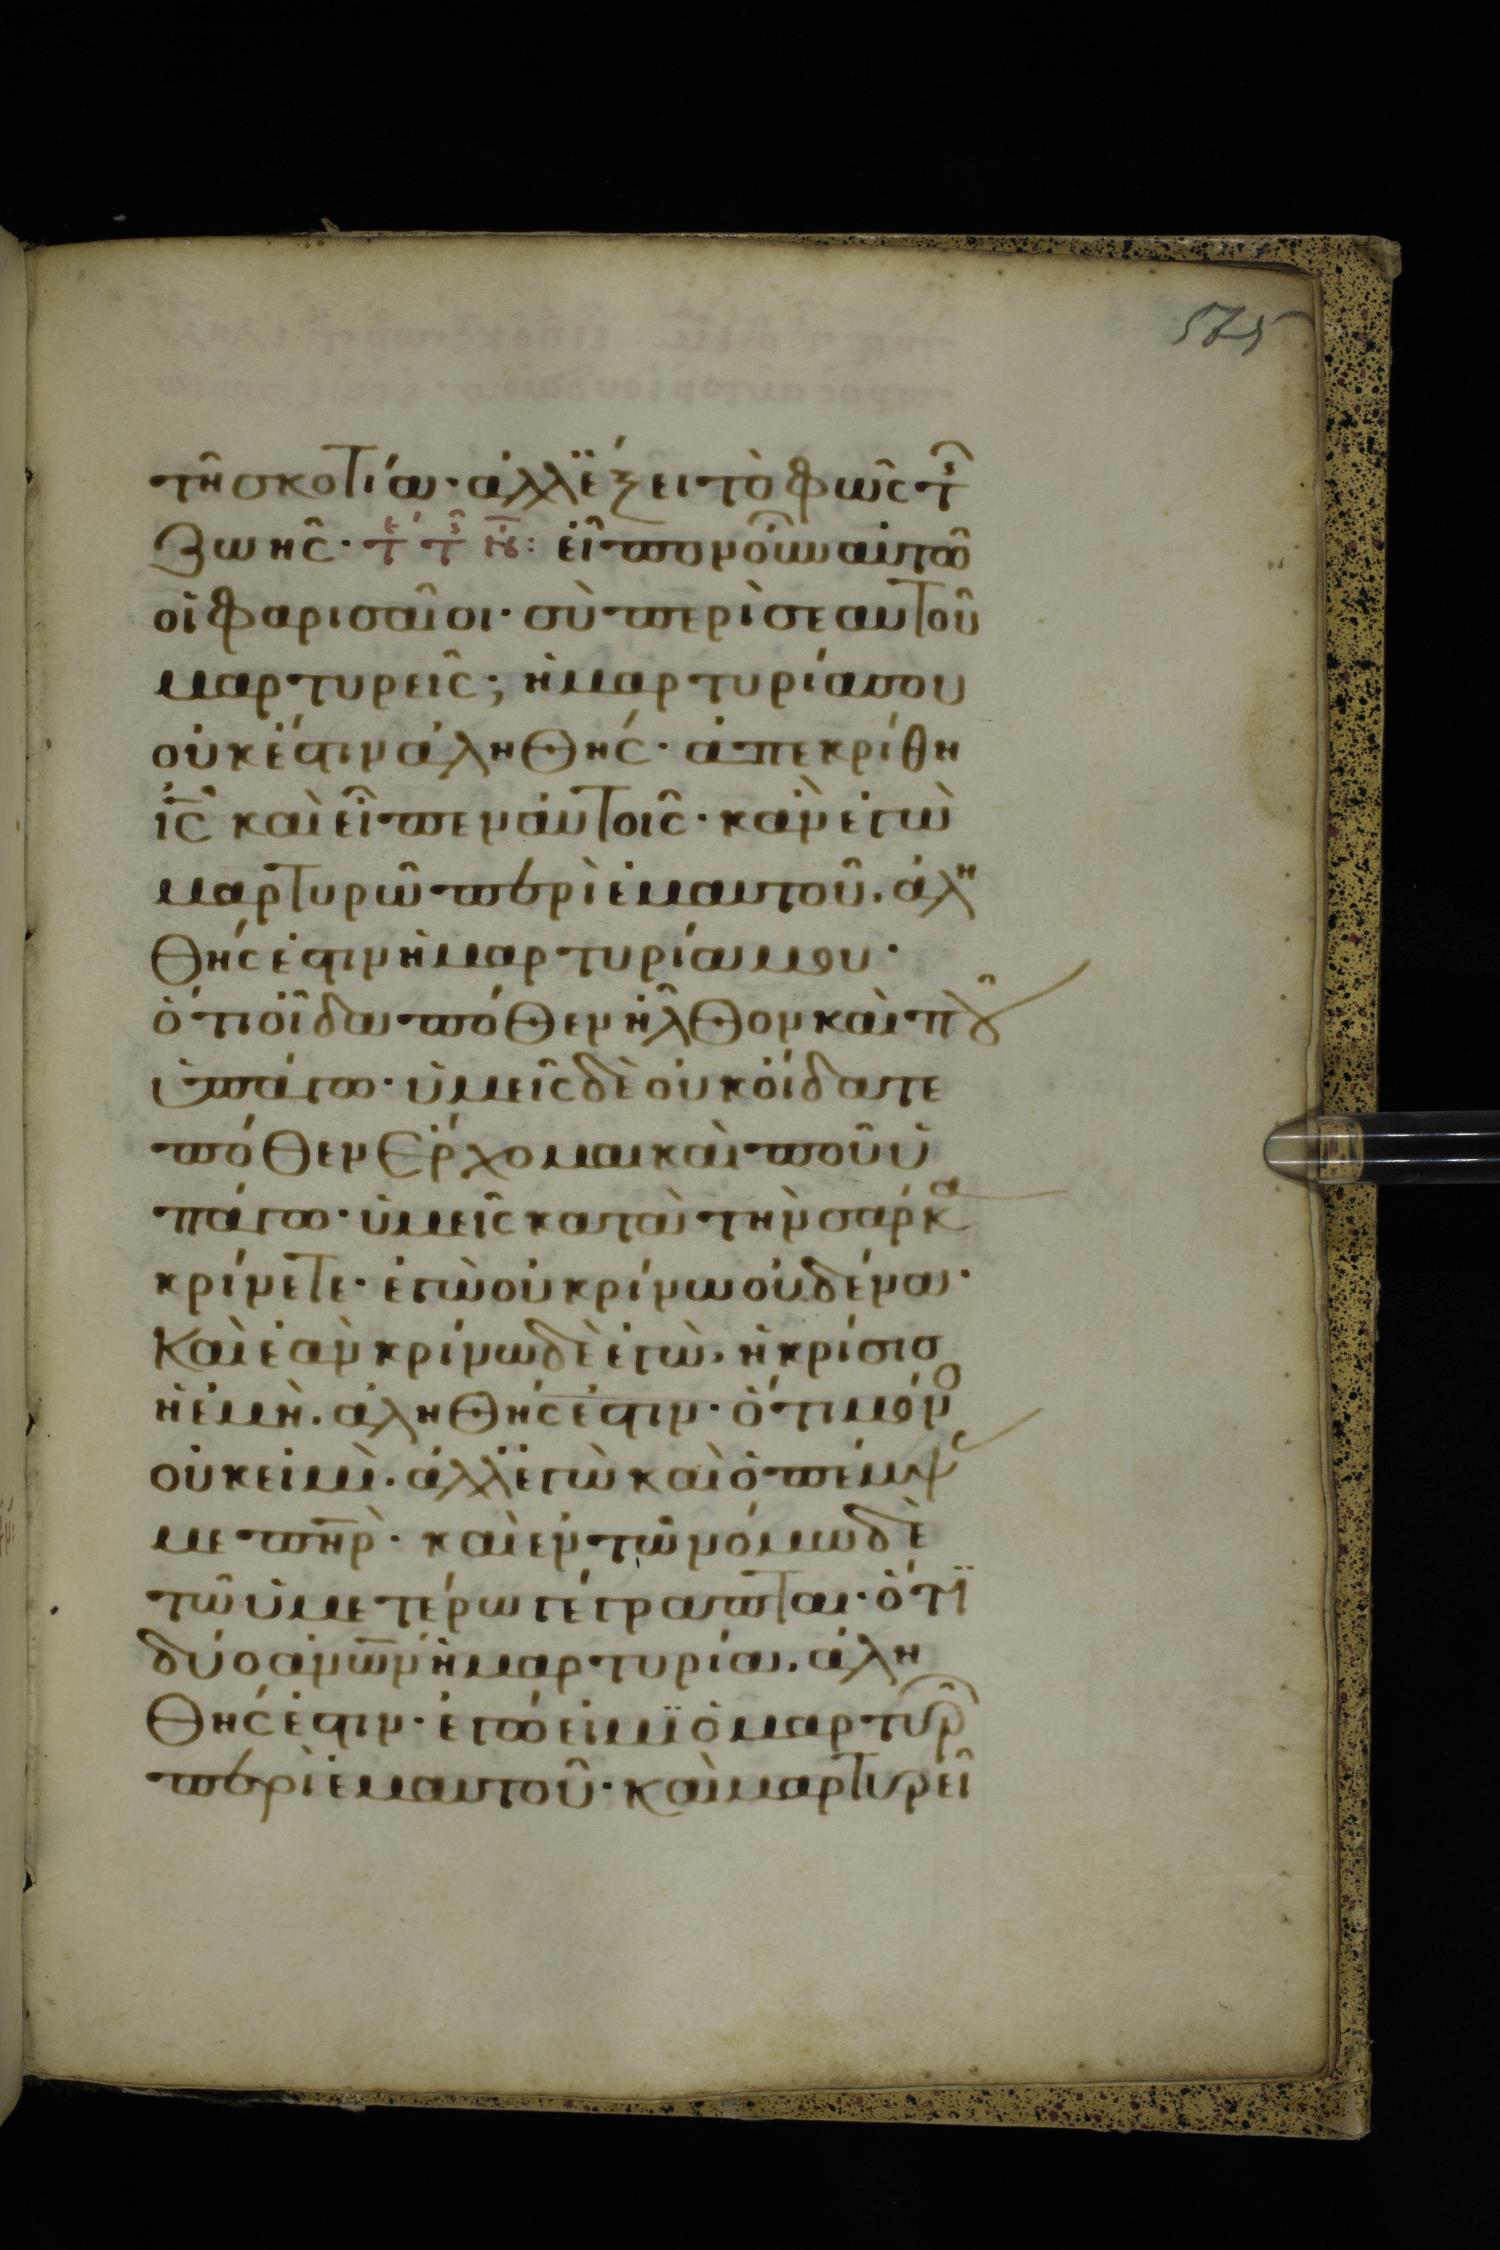 575
τῆ σκοτία· ἀλλ' ἕξει τὸ φῶς τ(ῆς)
ζωῆς· εἶπον οὖν αὐτῶ
οἱ φαρισαῖοι· σὺ περὶ σεαυτοῦ
μαρτυρεῖς; ἡ μαρτυρία σου
οὐκ ἔστιν ἀληθής· ἀπεκρίθη
ἰς καὶ εἶπεν αὐτοῖς· κἂν ἐγὼ
μαρτυρῶ περὶ ἐμαυτοῦ. ἀλη
θής ἐστιν ἡ μαρτυρία μου·
ὅτι οἶδα πόθεν ἦλθον καὶ ποῦ
ὑπάγω· ὑμεῖς δὲ οὐκ οἴδατε
πόθεν ἔρχομαι καὶ ποῦ ὑ
πάγω· ὑμεῖς κατὰ τὴν σάρκα
κρίνετε· ἐγὼ οὐ κρίνω οὐδένα·
Καὶ ἐὰν κρίνω δὲ ἐγὼ, ἡ κρίσισ
ἡ ἐμὴ. ἀληθής ἐστιν· ὅτι μόνο
οὐκ εἰμὶ. ἀλλ' ἐγὼ καὶ ὁ πέμψ
με πηρ· καὶ ἐν τῶ νόμω δὲ
τῶ ὑμετέρω γέγραπται· ὅτι
δύο ἀνων ἡ μαρτυρία. ἀλη
θής ἐστιν· ἐγώ εἰμι ὁ μαρτυρ
περὶ ἐμαυτοῦ· καὶ μαρτυρεῖ